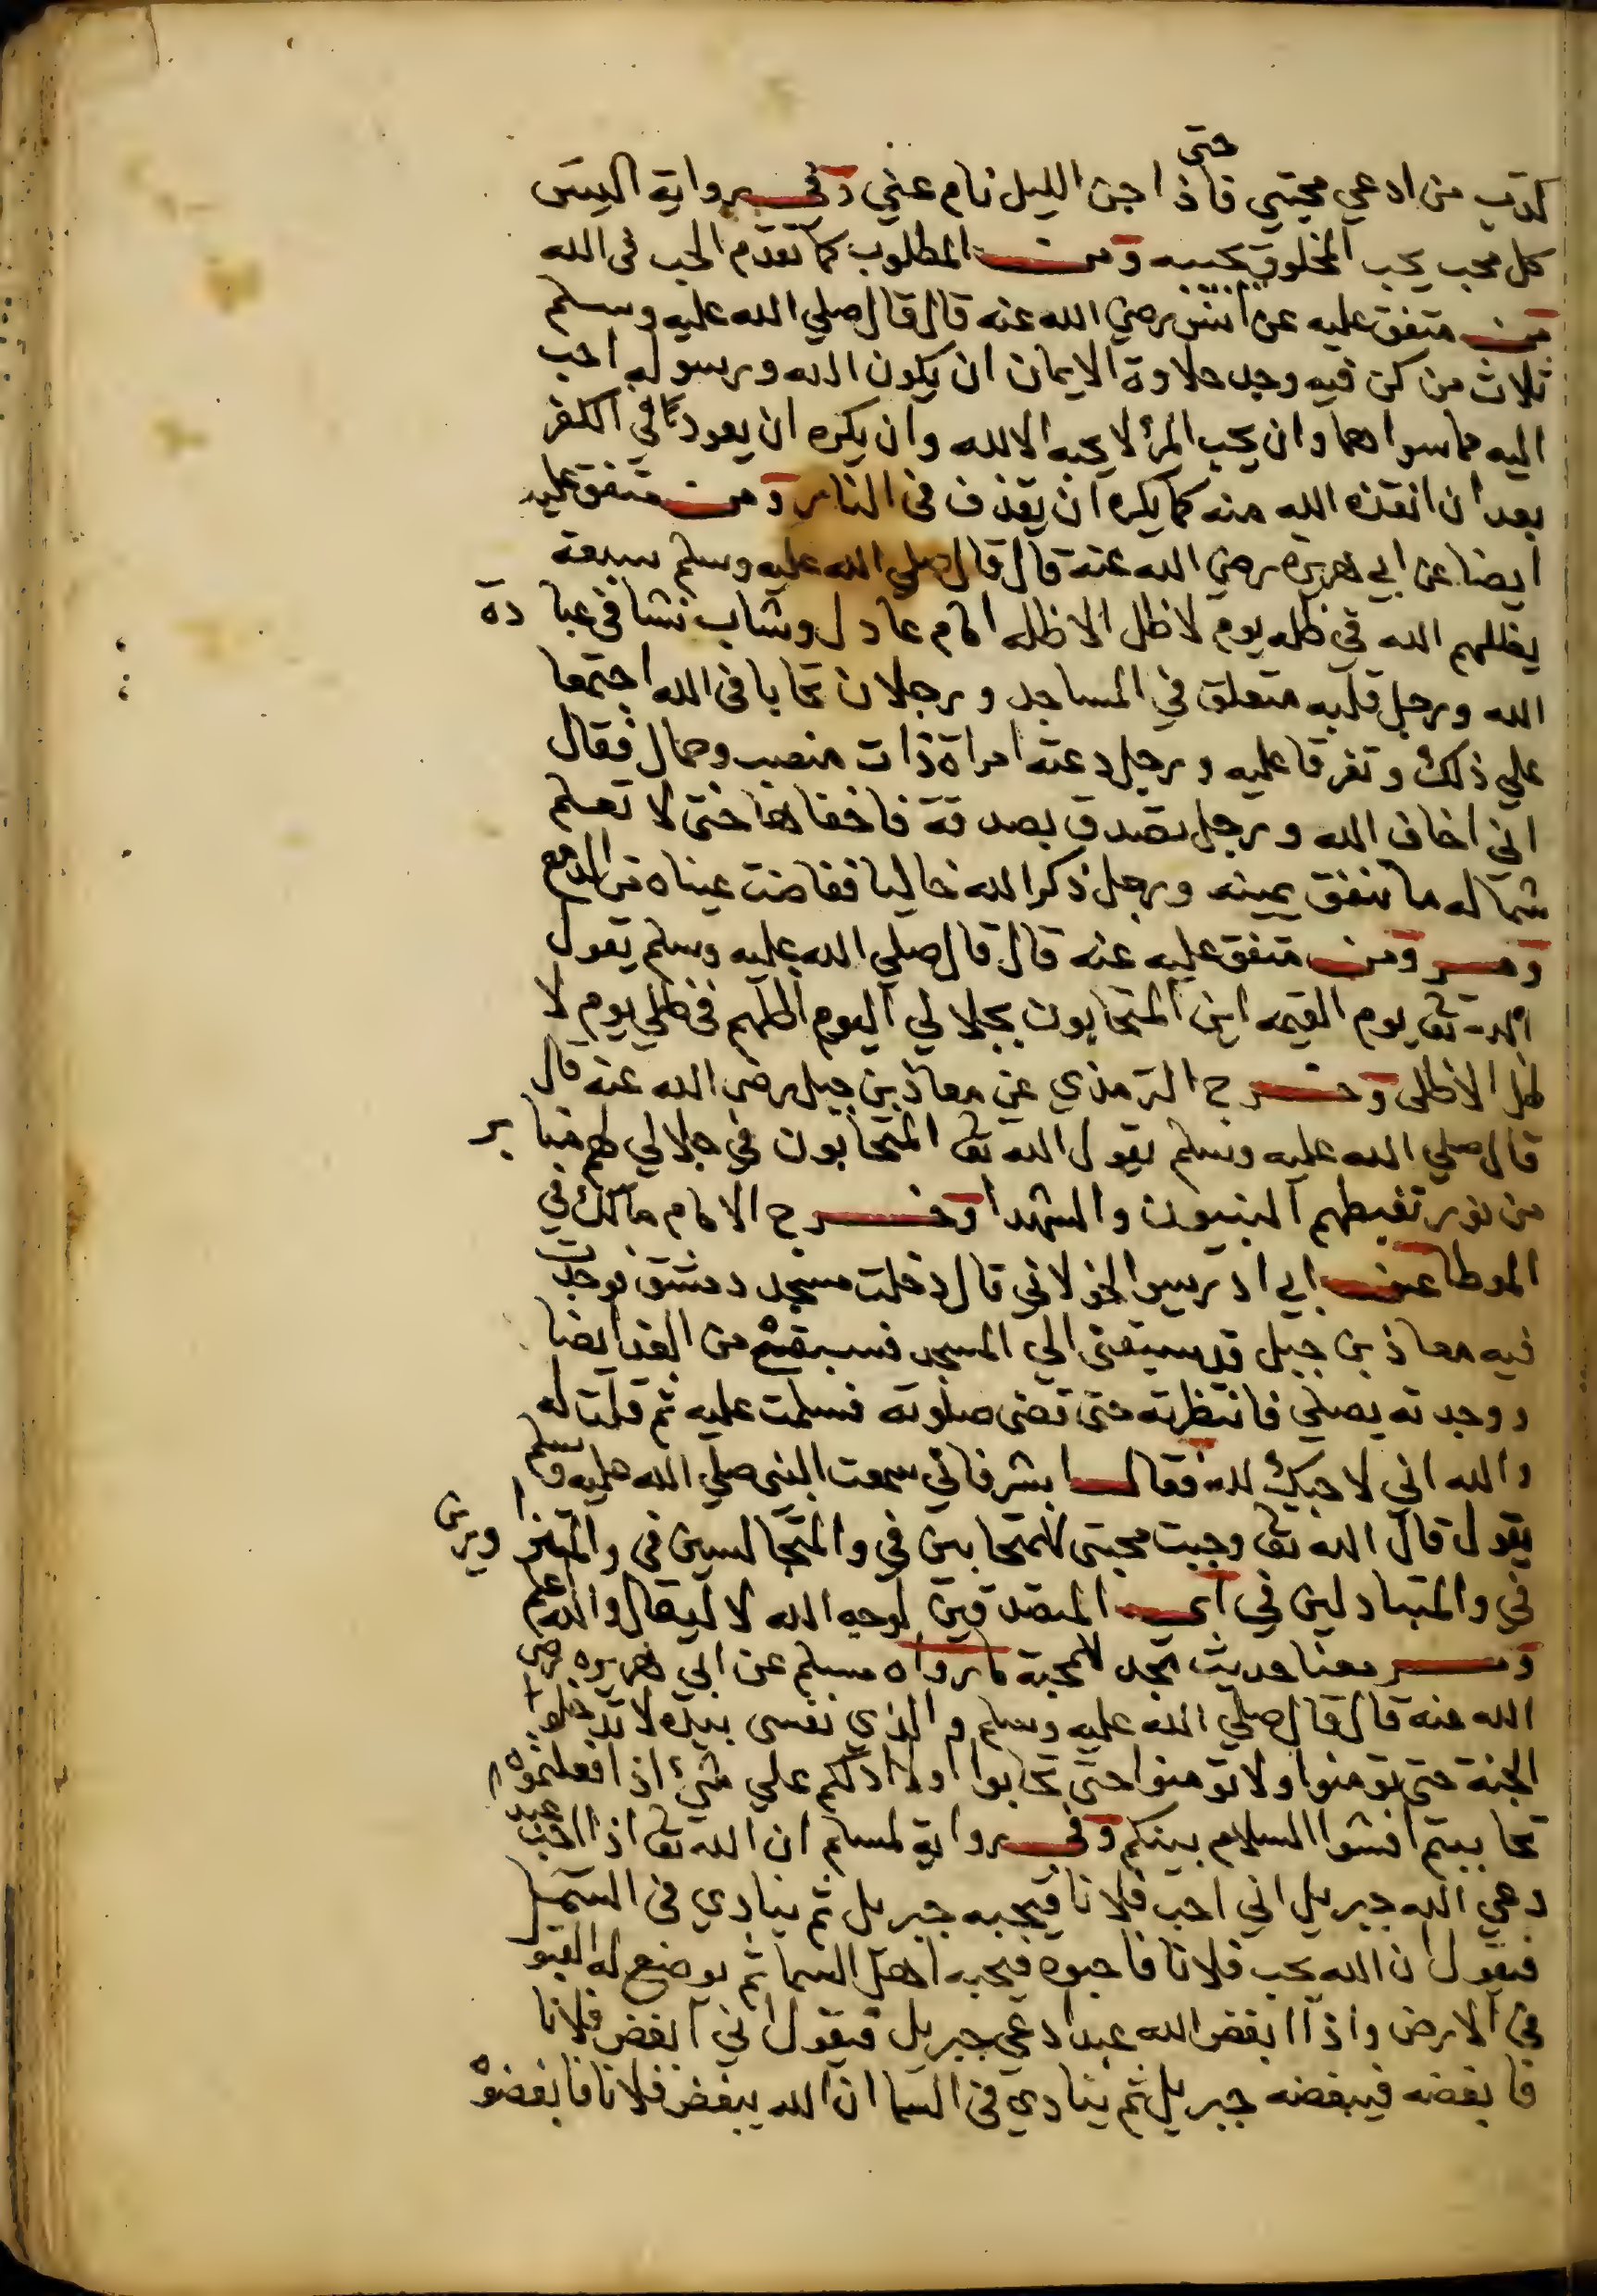 حتى
كذب من ادعي محبتي فاذا جن الليل نام عني وفي رواية اليس
كل محب يحب المخلوق بحبيبه ومن المطلوب كما تقدم الحب في الله
من متفق عليه عن انس رضي الله عنه قال قال صلي الله عليه وسلم
ثلاث من كن فيه وجد حلاوة الايمان ان يكون الله ورسوله احب
اليه مما سواهما وان يحب المرء لا يحبه الا لله وان يكره ان يعود في الكفر
بعد ان انقذه الله منه كما يكره ان يقذف في النار ومن متفق عليه
ايضا عن ابي هريرة رضي الله عنه قال قال صلي الله عليه وسلم سبعة
يظلهم الله في ظله يوم لا ظل الا ظله امام عادل وشاب نشا في عبادة
الله ورجل قلبه متعلق في المساجد ورجلان تحابا في الله اجتمعا
علي ذلك وتفرقا عليه ورجل دعته امراة ذات منصب وجمال فقال
اني اخاف الله ورجل تصدق بصدقة فاخفاها حتى لا تعلم
شماله ما تنفق يمينه ورجل ذكر الله خاليا ففاضت عيناه من الدمع
ومسر ومن متفق عليه عنه قال قال صلي الله عليه وسلم يقول
الله تعا يوم القيمه اين المتحابون بجلالي اليوم اظلهم في ظلي يوم لا
ظل الا ظلى وخرج الترمذي عن معاذ بن جبل رضى الله عنه قال
قال صلي الله عليه وسلم يقول الله تعا المتحابون في جلالي لهم منابر
من نور تغبطهم النبيون والشهدا وخرج الامام مالك في
الموطا عن ابي ادريس الخولاني قال دخلت مسجد دمشق فوجدت
فيه معاذ بن جبل قد سبقنى الي المسجد من الغد ايضا
ووجدته يصلي فانتظرته حتى قضى صلوته فسلمت عليه ثم قلت له
والله اني لاحبك لله فقال ابشر فاني سمعت النبى صلي الله عليه وسلم
يقول قال الله تعا وجبت محبتى للمتحابين في والمتجالسين في والمتزاورين
في والمتباذلين في اي المتصدقين لوجه الله لا ليقال والله اعلم
ومسر معنا حديث تجد للمحبة ما رواه مسلم عن ابي هريره رضي
الله عنه قال قال صلي الله عليه وسلم والذي نفسى بيده لا تدخلوا
الجنة حتى تومنوا ولا تومنوا حتى تحابوا اولا ادلكم علي شئ اذا فعلتموه
تحاببتم افشوا السلام بينكم وفي رواية لمسلم ان الله تعا اذا احب عبد
دعي الله جبريل اني احب فلانا فيحبه جبريل ثم ينادي في السما
فيقول ان الله يحب فلانا فاحبوه فيحبه اهل السما ثم يوضع له القبو
في الارض واذا ابغض الله عبدا دعي جبريل فيقول اني ابغض فلانا
فابغضه فيبغضه جبريل ثم ينادي في السما ان الله يبغض فلانا فابغضوه